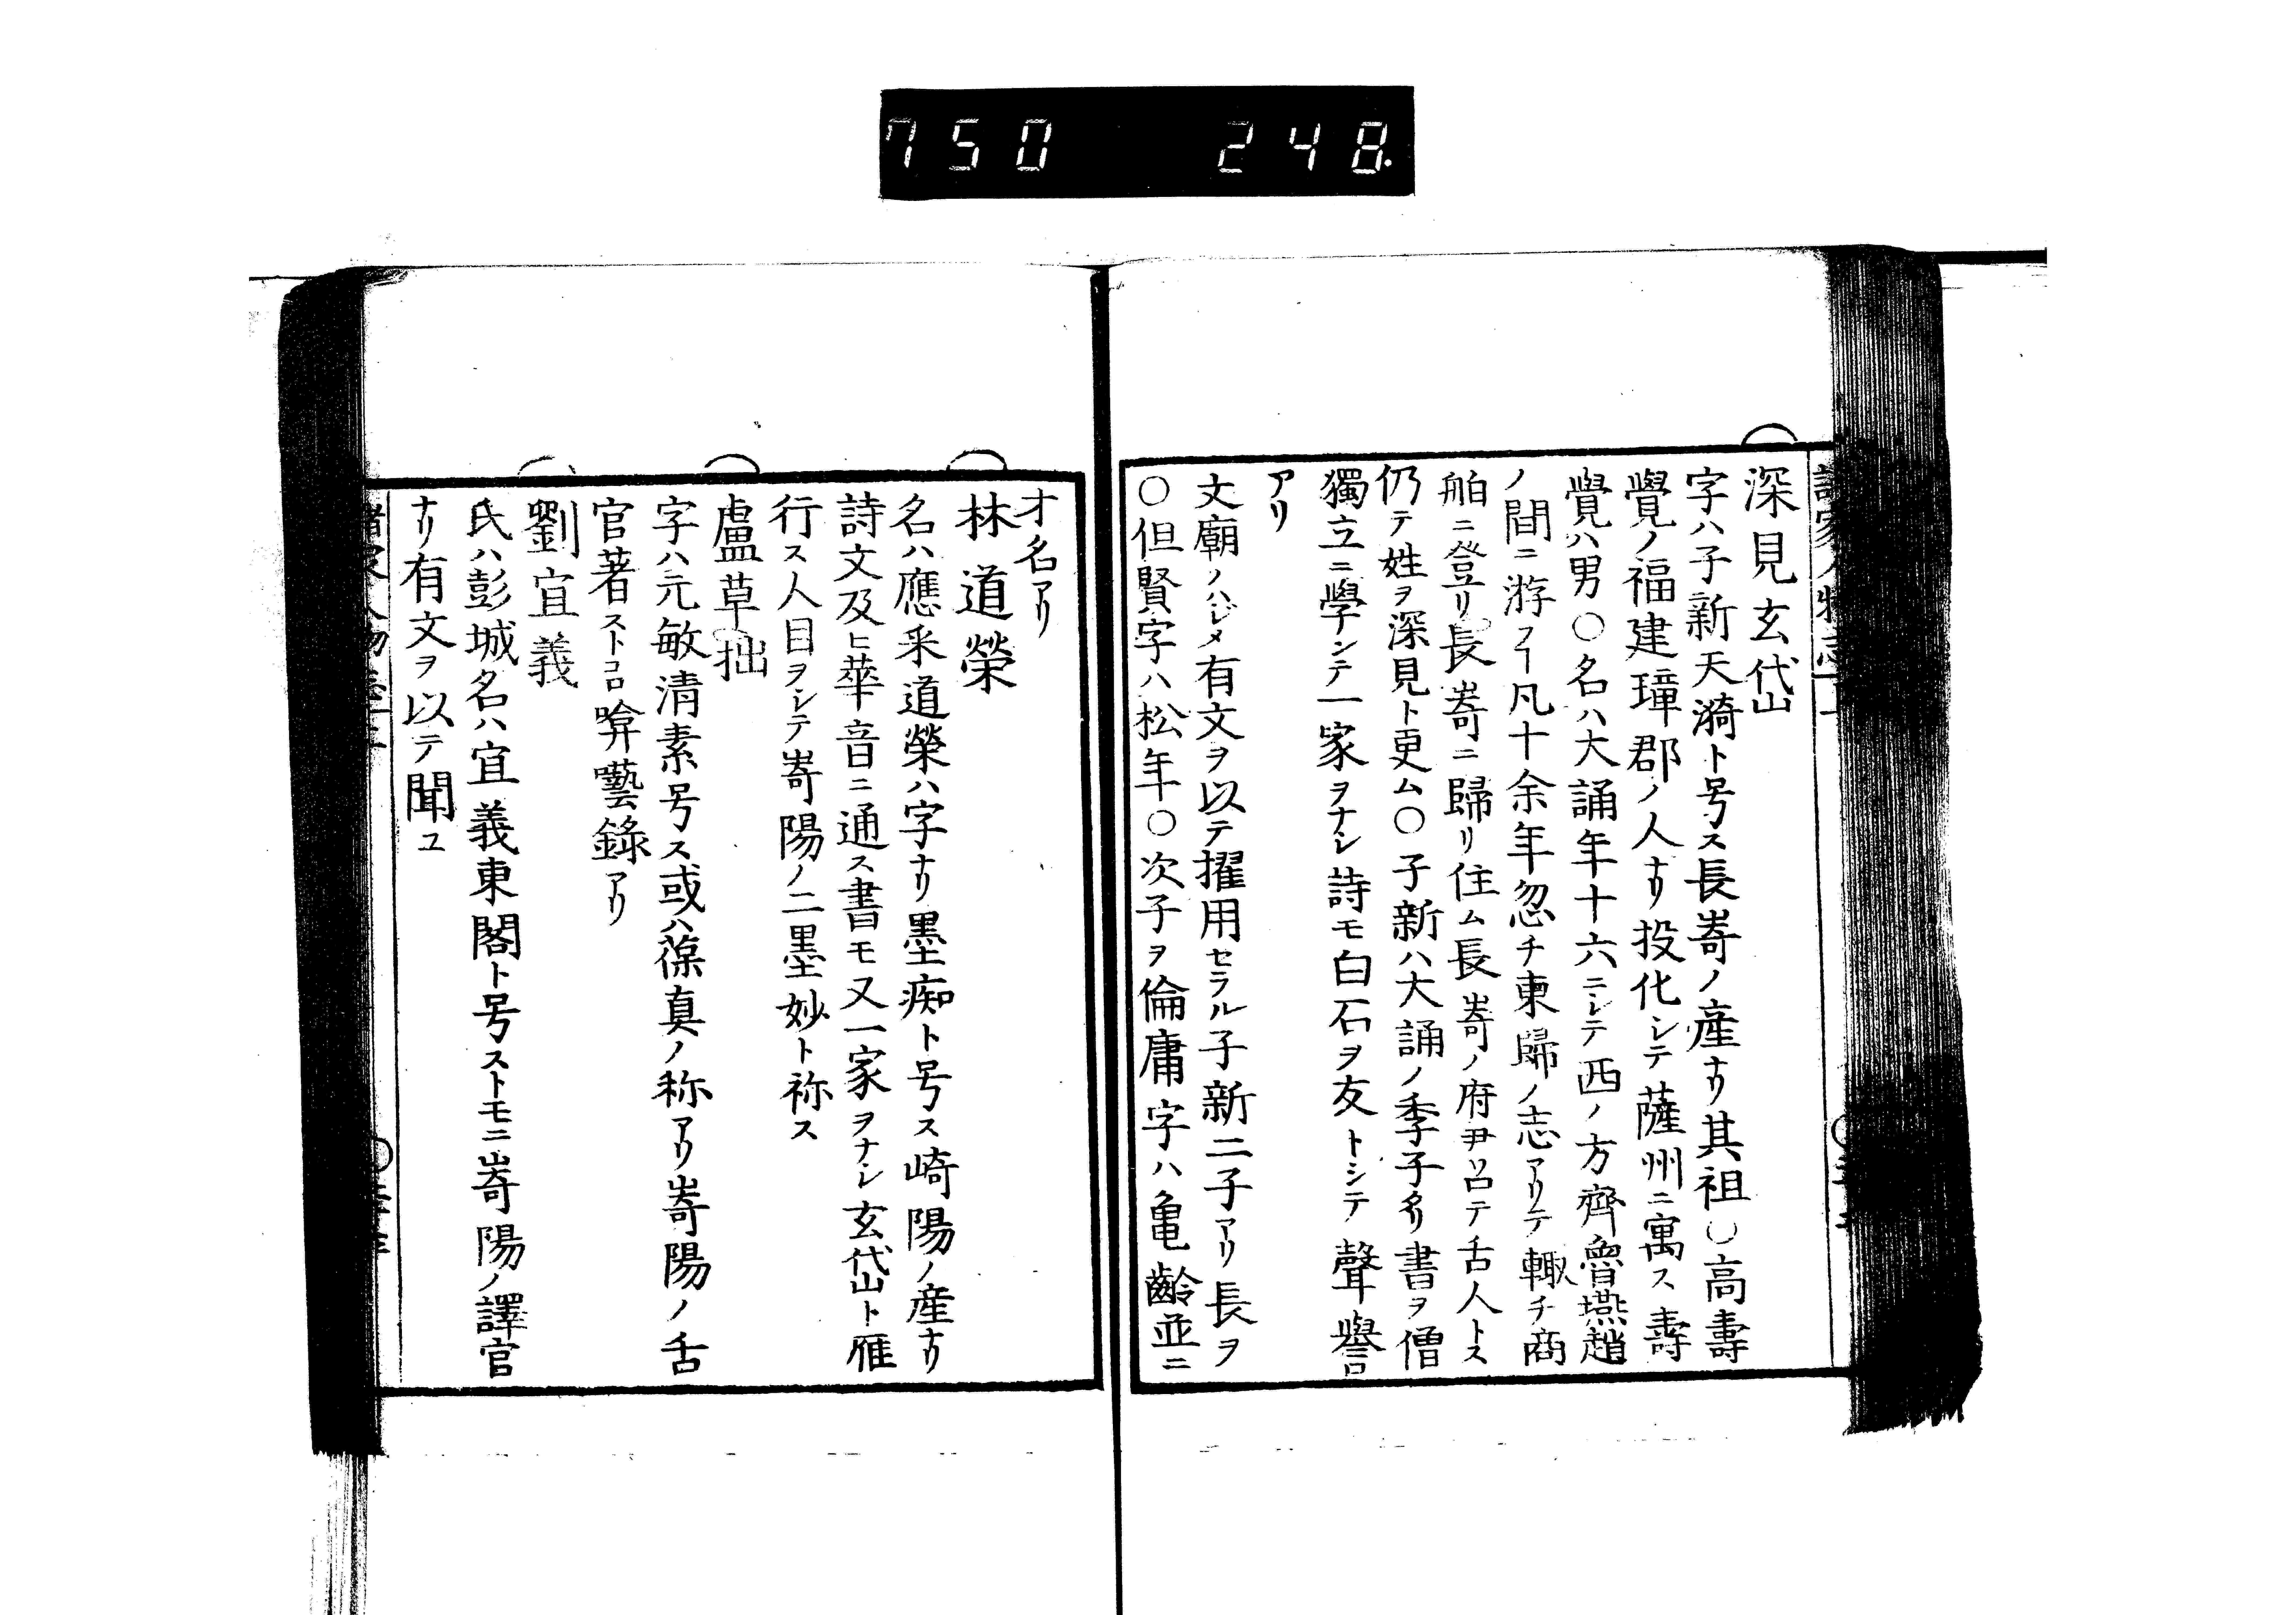 750 248
深見玄岱
字ハ子新天漪ト号ス長嵜ノ産ナリ其祖○高壽
覺ノ福建璋郡ノ人ナリ投化シテ薩州ニ寓ス壽
覺ハ男○名ハ大誦年十六ニシテ西ノ方齊魯燕趙
ノ間ニ游フヿ凡十余年忽チ東歸ノ志アリテ輙チ商
舶ニ登リ長嵜ニ歸リ住ム長嵜ノ府尹召テ舌人トス
仍テ姓ヲ深見ト更ム○子新ハ大誦ノ季子ナリ書ヲ僧
獨立ニ學ンテ一家ヲナシ詩モ白石ヲ友トシテ聲譽
アリ
文廟ノハジメ有文ヲ以テ擢用セラル子新二子アリ長ヲ
○但賢字ハ松年○次子ヲ倫庸字ハ亀齡並ニ
才名アリ
林道榮
名ハ應寀道榮ハ字ナリ墨痴ト号ス崎陽ノ産ナリ
詩文及ヒ華音ニ通ス書モ又一家ヲナシ玄岱ト雁
行ス人目ヲシテ嵜陽ノ二墨妙ト称ス
盧草拙
字ハ元敏清素号ス或ハ葆真ノ称アリ嵜陽ノ舌
官著ストコロ喭囈錄アリ
劉宜義
氏ハ彭城名ハ宜義東閣ト号ストモニ嵜陽ノ譯官
ナリ有文ヲ以テ聞ユ